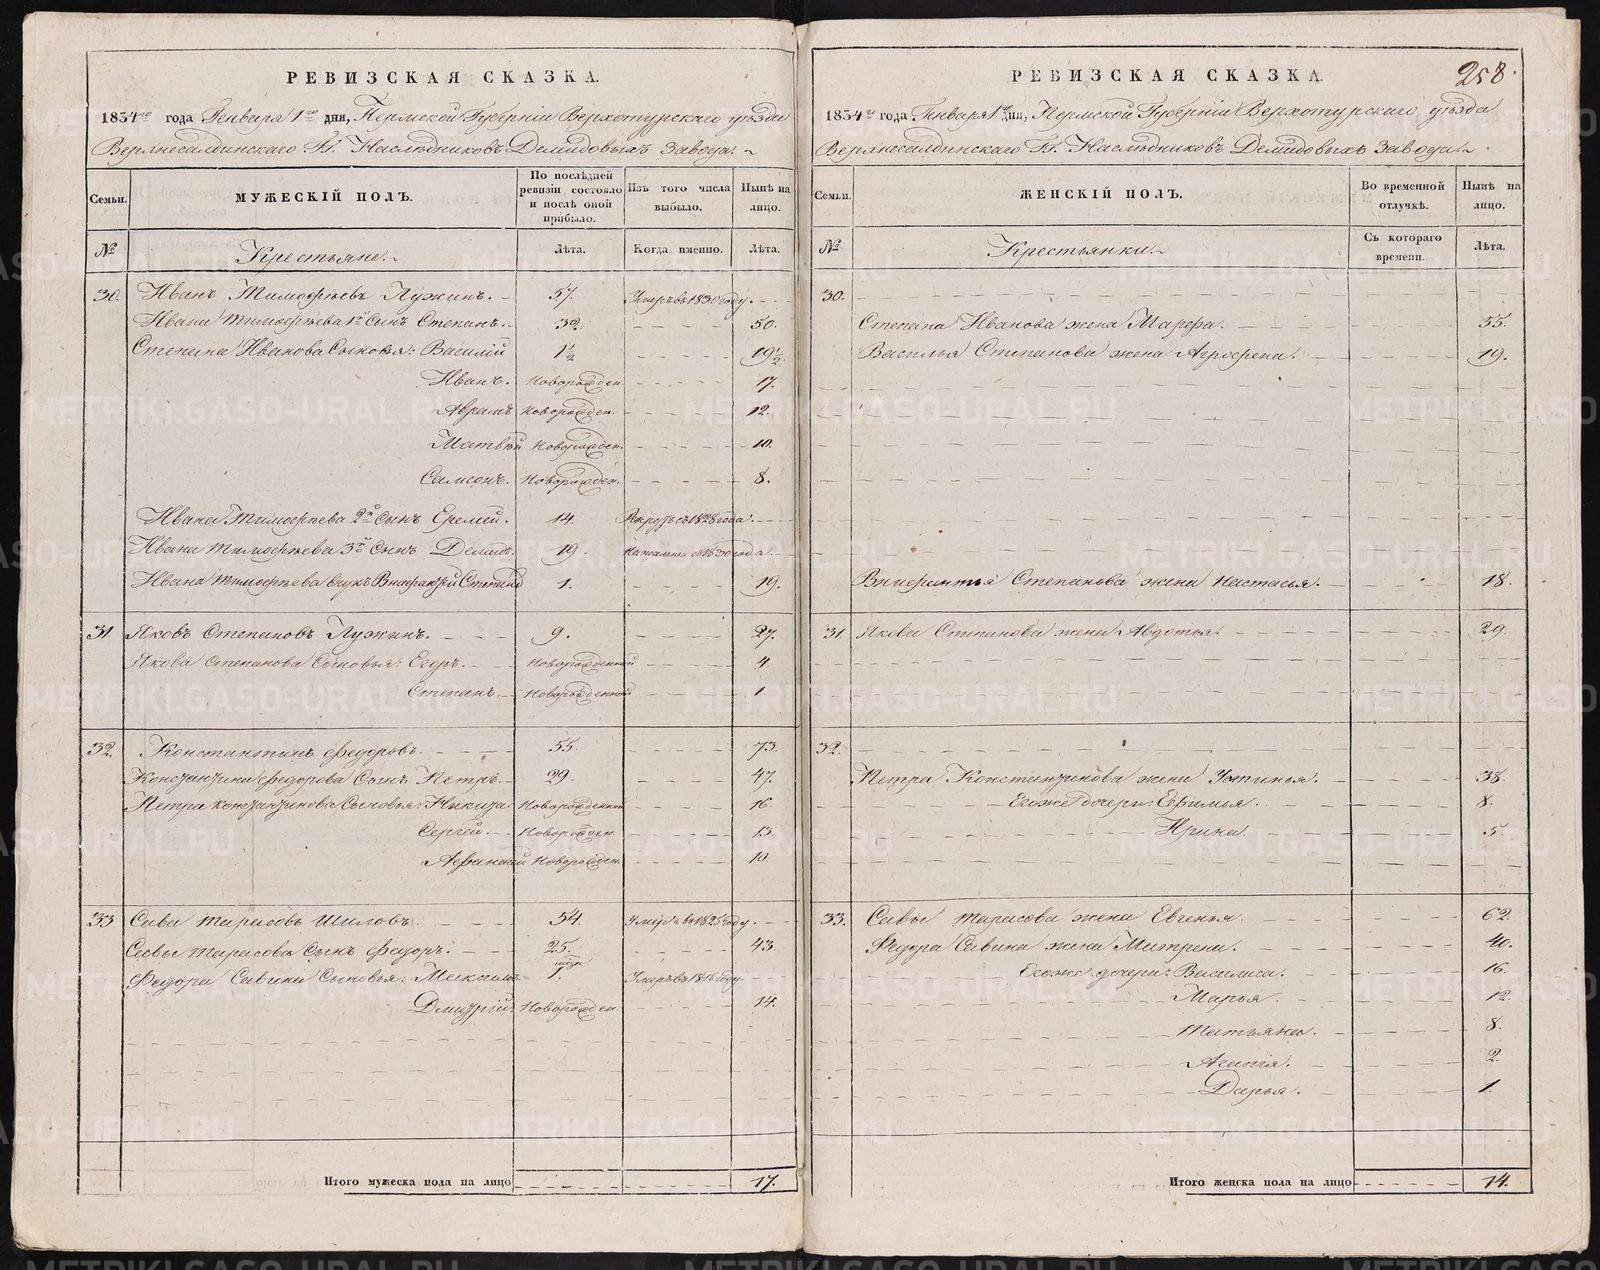 РЕВИЗСКАЯ СКАЗКА.
1834го года Генваря 1го дня, Пермской Губерніи Верхотурскаго уѣзда
Верхнесалдинскаго Гг. Наслѣдниковъ Демидовыхъ Завода.
Семьи. МУЖЕСКІЙ ПОЛЪ. По послѣдней ревизіи состояло и послѣ оной прибыло. Изъ того числа выбыло. Нынѣ на лицо.
№ Крестьяне. Лѣта. Когда именно. Лѣта.
30. Иванъ Тимофѣевъ Лужинъ. 57. Умеръ въ 1830 году.
Ивана Тимофѣева 1й Сынъ Степанъ. 32. 50.
Степана Иванова Сыновья: Василій 1 1/2 19 1/2
Иванъ. Новорожден. 17.
Аврамъ Новорожден. 12.
Матвѣй Новорожден. 10.
Самсонъ. Новорожден. 8.
Ивана Тимофѣева 2й Сынъ Еремей. 14. Рекрутъ съ 1828 года.
Ивана Тимофѣева 3й Сынъ Демидъ 19. 1830 года.
Ивана Тимофѣева внукъ Степановъ 1. 19.
31. Яковъ Степановъ Лужинъ. 9. 27.
Якова Степанова Сыновья: Егоръ. Новорожденный 4.
Степанъ. Новорожденный 1.
32. Константинъ Федоровъ. 55. 73.
Константина Федорова Сынъ Петръ. 29. 47.
Петра Константинова Сыновья: Никита Новорожденной 16.
Сергей. Новорожден. 13.
Афанасій Новорожден. 10.
33. Сава Тарасовъ Шиловъ. 54. Умеръ въ 1825 году.
Савы Тарасова Сынъ Федоръ. 25. 43.
Федора Савина Сыновья: Максимъ 1. Умеръ въ 1816 году.
Дмитрій. Новорожден. 14.
Итого мужеска пола на лицо 17.
РЕВИЗСКАЯ СКАЗКА. 258.
1834го года Генваря 1го дня, Пермской Губерніи Верхотурскаго уѣзда
Верхнесалдинскаго Гг. Наслѣдниковъ Демидовыхъ Завода.
Семьи. ЖЕНСКІЙ ПОЛЪ. Во временной отлучкѣ. Нынѣ на лицо.
№ Крестьянки. Съ котораго времени. Лѣта.
30.
Степана Иванова жена Марфа. 55.
Василья Степанова жена Агрофена. 19.
Степанова жена Настасья. 18.
31. Якова Степанова жена Авдотья. 29.
32.
Петра Константинова жена Устинья. 38.
Егоже дочери: Ефимья. 8.
Ирина. 5.
33. Савы Тарасова жена Евгенья. 62.
Федора Савина жена Матрена. 40.
Егоже дочери: Василиса. 16.
Марья. 12.
Татьяна. 8.
Агапія. 2.
Дарья. 1.
Итого женска пола на лицо 14.
METRIKI.GASO-URAL.RU